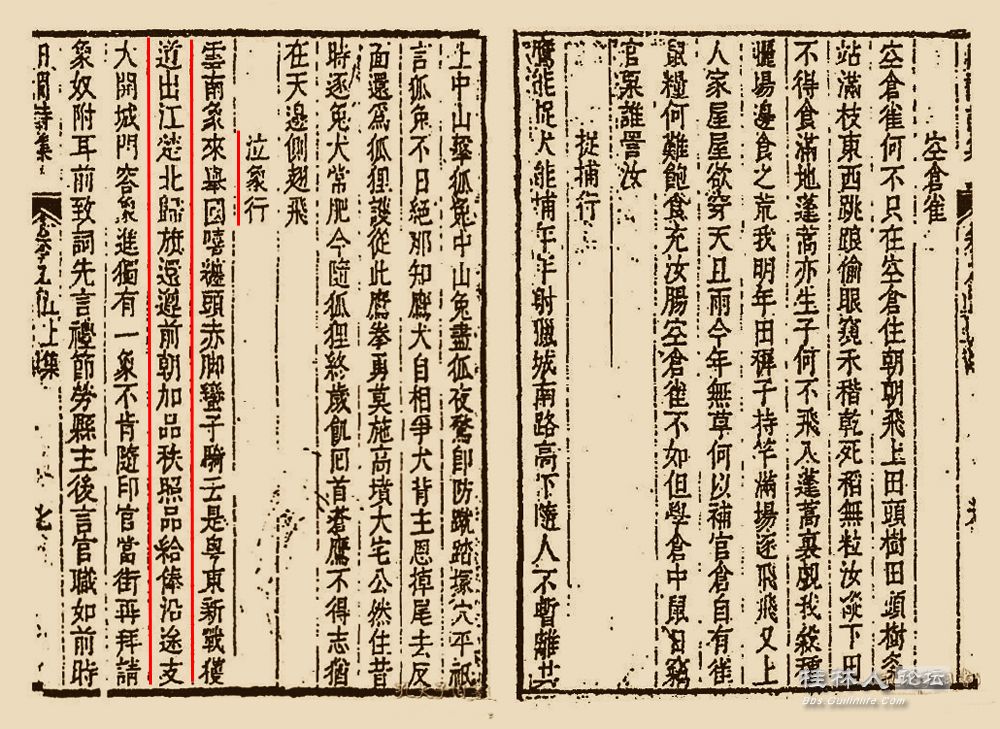 空倉雀
空倉雀何不只在空倉住朝朝飛上田頭樹田頭樹
站滿枝東西跳踉偷眼窺禾稭乾死稻無粒汝下田
不得食滿地蓬蒿亦生子何不飛入蓬蒿裏覷我種
曬場邊食之荒我明年田稗子持竿滿場逐飛飛又上
人家屋屋欲穿天且雨今年無草何以補官倉自有雀
鼠糧何難飽食充汝腸空倉雀不如但學倉中鼠日竊
官粟誰詈汝
捉捕行
鷹能捉犬能捕年年射獵城南路高下隨人不暫離
上中山擊狐兔中山兔盡狐夜驚卽防蹴踏塚穴平祇
言狐兔不日絕那知鷹犬自相爭犬背主恩掉尾去反
面還爲狐狸護從此鷹拳勇莫施高墳大宅公然住昔
時逐兔犬常肥今隨狐狸終歲飢回首蒼鷹不得志猶
在天邊側翅飛
泣象行
雲南象來舉國嘻纏頭赤脚蠻子騎云是粵東新戰獲
道出江楚北歸旗還遵前朝加品秩照品給俸沿途支
大開城門容象進獨有一象不肯隨印官當街再拜請
象奴附耳前致詞先言禮節勞縣主後言官職如前時
詩集
上集
七
桂林人论坛
bbs.Guilinlife.com